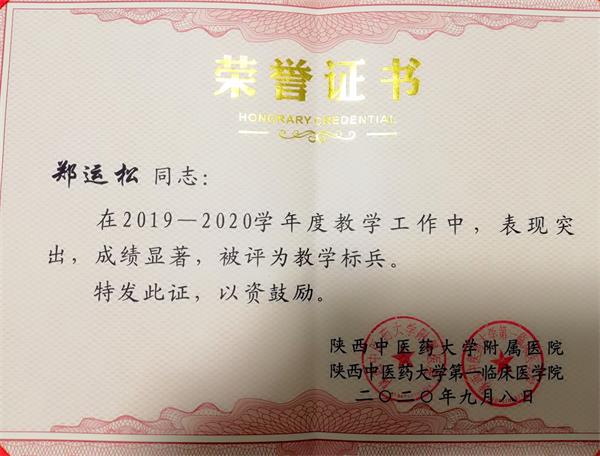 荣誉证书
HONORARY CREDENTIAL
郑运松 同志：
在2019—2020学年度教学工作中，表现突
出，成绩显著，被评为教学标兵。
特发此证，以资鼓励。
陕西中医药大学附属医院
陕西中医药大学第一临床医学院
二〇二〇年九月八日